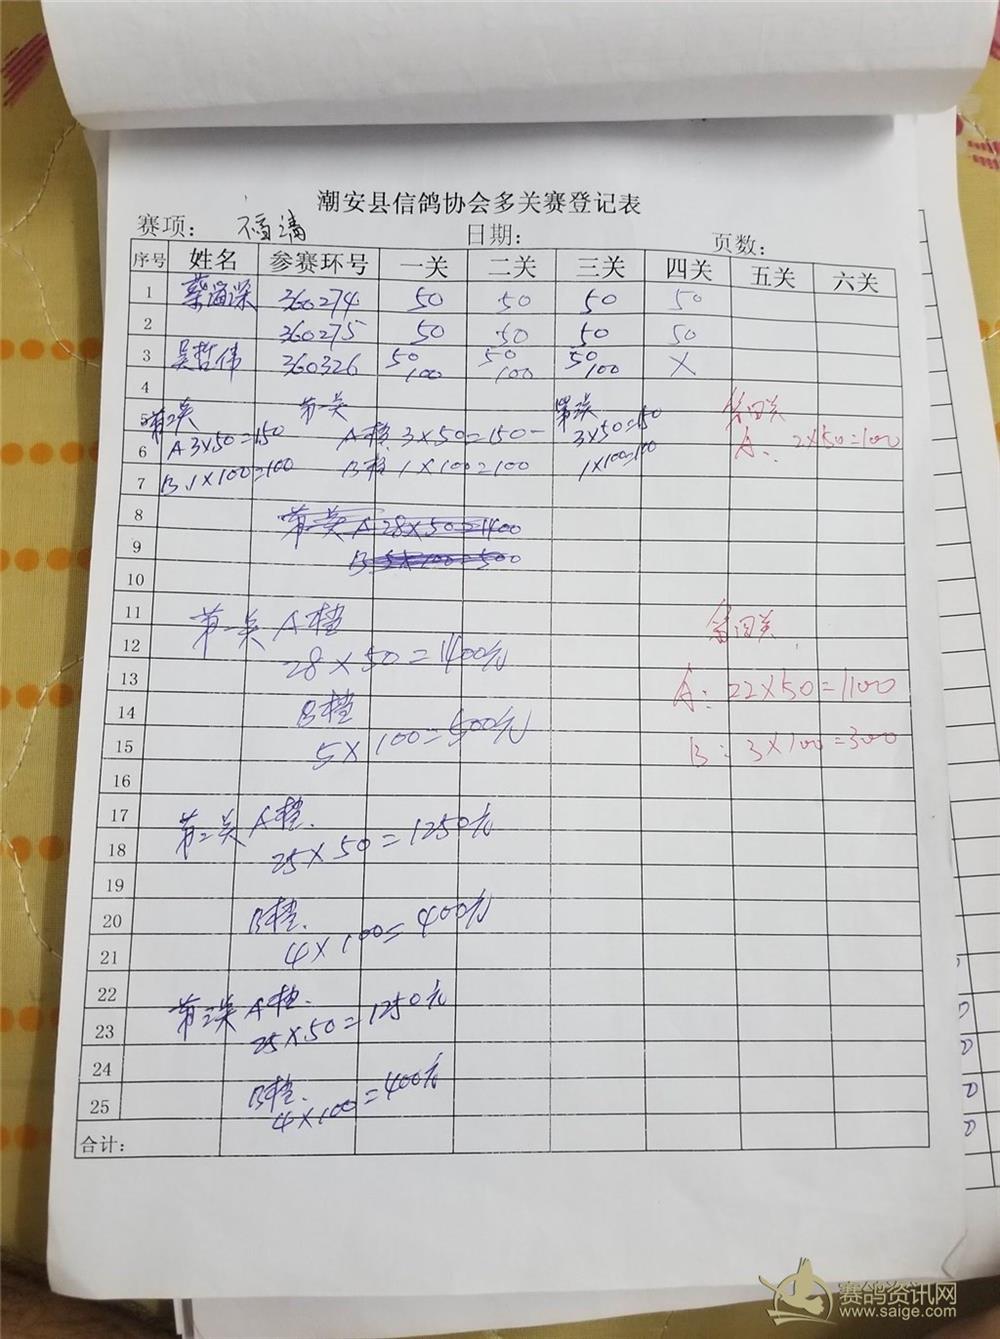 潮安县信鸽协会多关赛登记表
赛项： 福清 日期： 页数：
序号 姓名 参赛环号 一关 二关 三关 四关 五关 六关
1 蔡 深 360274 50 50 50 50
2 360275 50 50 50 50
3 吴哲伟 360326 50 100 50 100 50 100 X
4
5 第二关 第一关 第三关 第四关
6 A 3×50=150 A档 3×50=150 3×50=150 A: 2×50=100
7 B 1×100=100 B档 1×100=100 1×100=100
8 第一关 A 28×50=1400
9 B 5×100=500
10
11 第一关 A档 第四关
12 28×50=1400元
13 A: 22×50=1100
14 B档
15 5×100=500元 B: 3×100=300
16
17 第二关 A档
18 25×50=1250元
19
20 B档
21 4×100=400元
22 第三关 A档
23 25×50=1250元
24
25 B档 4×100=400元
合计：
赛鸽资讯网
www.saige.com